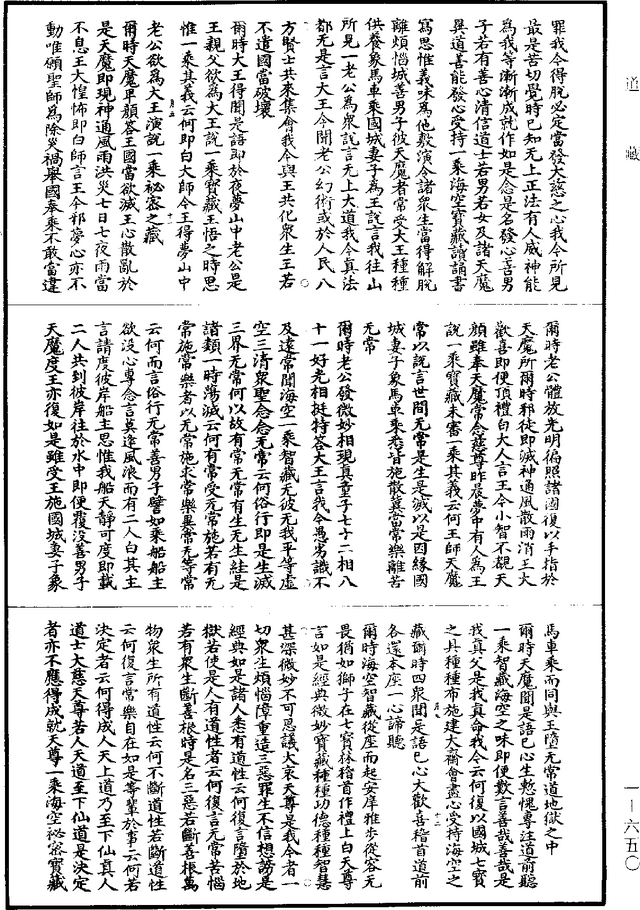 道藏
罪我今得脫必定當發大慈之心我今所見
最是苦切覺時已知无上正法有人威神能
為我等漸漸成就作如是念是名發心善男
子若有善心清信道士若男若女及諸天魔
異道善能發心受持一乘海空寶藏讀誦書
寫思惟義味為他敷演令諸眾生當得解脫
離煩惱城善男子彼天魔者常受大王種種
供養象馬車乘國城妻子為王說言我往山
所見一老公為眾說言无上大道我今真法
都无是言大王今聞老公幻術或於人民八
方賢士共來集會我今與王共化眾生王若
不遣國當破壞
爾時大王得聞是語即於夜夢山中老公是
王親父欲為大王說一乘寶藏王悟之時思
惟一乘其義云何即白大師今王得夢山中
老公欲為大王演說一乘祕密之藏
爾時天魔卑顏答王國當欲滅王心散亂於
是天魔即現神通風雨洪災七日七夜雨當
不息王大惶怖即白師言王今邪夢心亦不
動唯願聖師為除災禍舉國奉乘不敢當違
爾時老公體放光明徧照諸國復以手指於
天魔所爾時邪徒即滅神通風散雨消王大
歡喜即便頂禮白大人言王今小智不覩天
顏雖奉天魔常念慈尊昨晨夢中有人為王
說一乘寶藏未審一乘其義云何王師天魔
常以說言世間无常是生是滅以是因緣國
城妻子象馬車乘悉皆施散冀當常樂離苦
无常
爾時老公發微妙相現真童子七十二相八
十一好光相挺特答大王言我今愚劣識不
及達常聞海空一乘智藏无彼无我平等虛
空三清眾聖念念无常云何俗行即是生滅
三界无常何以故有常无常有生无生絓是
諸類一時蕩滅云何有常受无常施若有无
常施常樂者以无常施求常樂果常无等常
云何而言俗行无常善男子譬如乘船船主
欲沒心專念言莫逢風浪而有二人白其主
言請度彼岸船主思惟我船天靜可度即載
二人共到彼岸往於水中即便覆沒善男子
天魔度王亦復如是雖受王施國城妻子象
馬車乘而同與王墮无常道地獄之中
爾時天魔聞是語已心生慙愧專注道前聽
一乘智藏海空之味即便歎言善哉善哉是
我真父是我真命我今云何復以國城七寶
之具種種布施建大齋會盡心受持海空之
藏爾時四眾聞是語已心大歡喜稽首道前
各還本座一心諦聽
爾時海空智藏從座而起安庠雅步從容无
畏猶如獅子在七寶林稽首作禮上白天尊
言如是經典微妙寶藏種種功德種種智慧
甚深微妙不可思議大哀天尊是我今者一
切眾生煩惱障重造三惡罪生不信想謗是
經典如是諸人悉有道性云何復言墮於地
獄若使是人有道性者云何復言无常苦惱
若有眾生斷善根時是名三惡若斷善根萬
物眾生所有道性云何不斷道性若斷道性
云何復言常樂自在如是等輩於事云何若
決定者云何得成人天上道乃至下仙真人
道士大慈天尊若人天道至下仙道是決定
者亦不應得成就天尊一乘海空祕密寶藏
一—六五〇